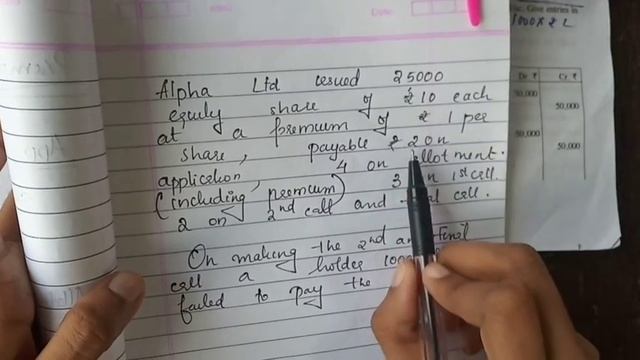 Alpha Ltd issued 25000
equity share of ₹10 each
at a premium of ₹ 1 per
share, payable ₹ 2 on
application, 4 on allotment.
(including premium) 3 on 1st call
2 on 2nd call and final call.
On making the 2nd and final
call a holder 1000
failed to pay the
Date:
Give entries in
1000 x ₹ 2
Dr. ₹ Cr. ₹
50,000
50,000
50,000
50,000